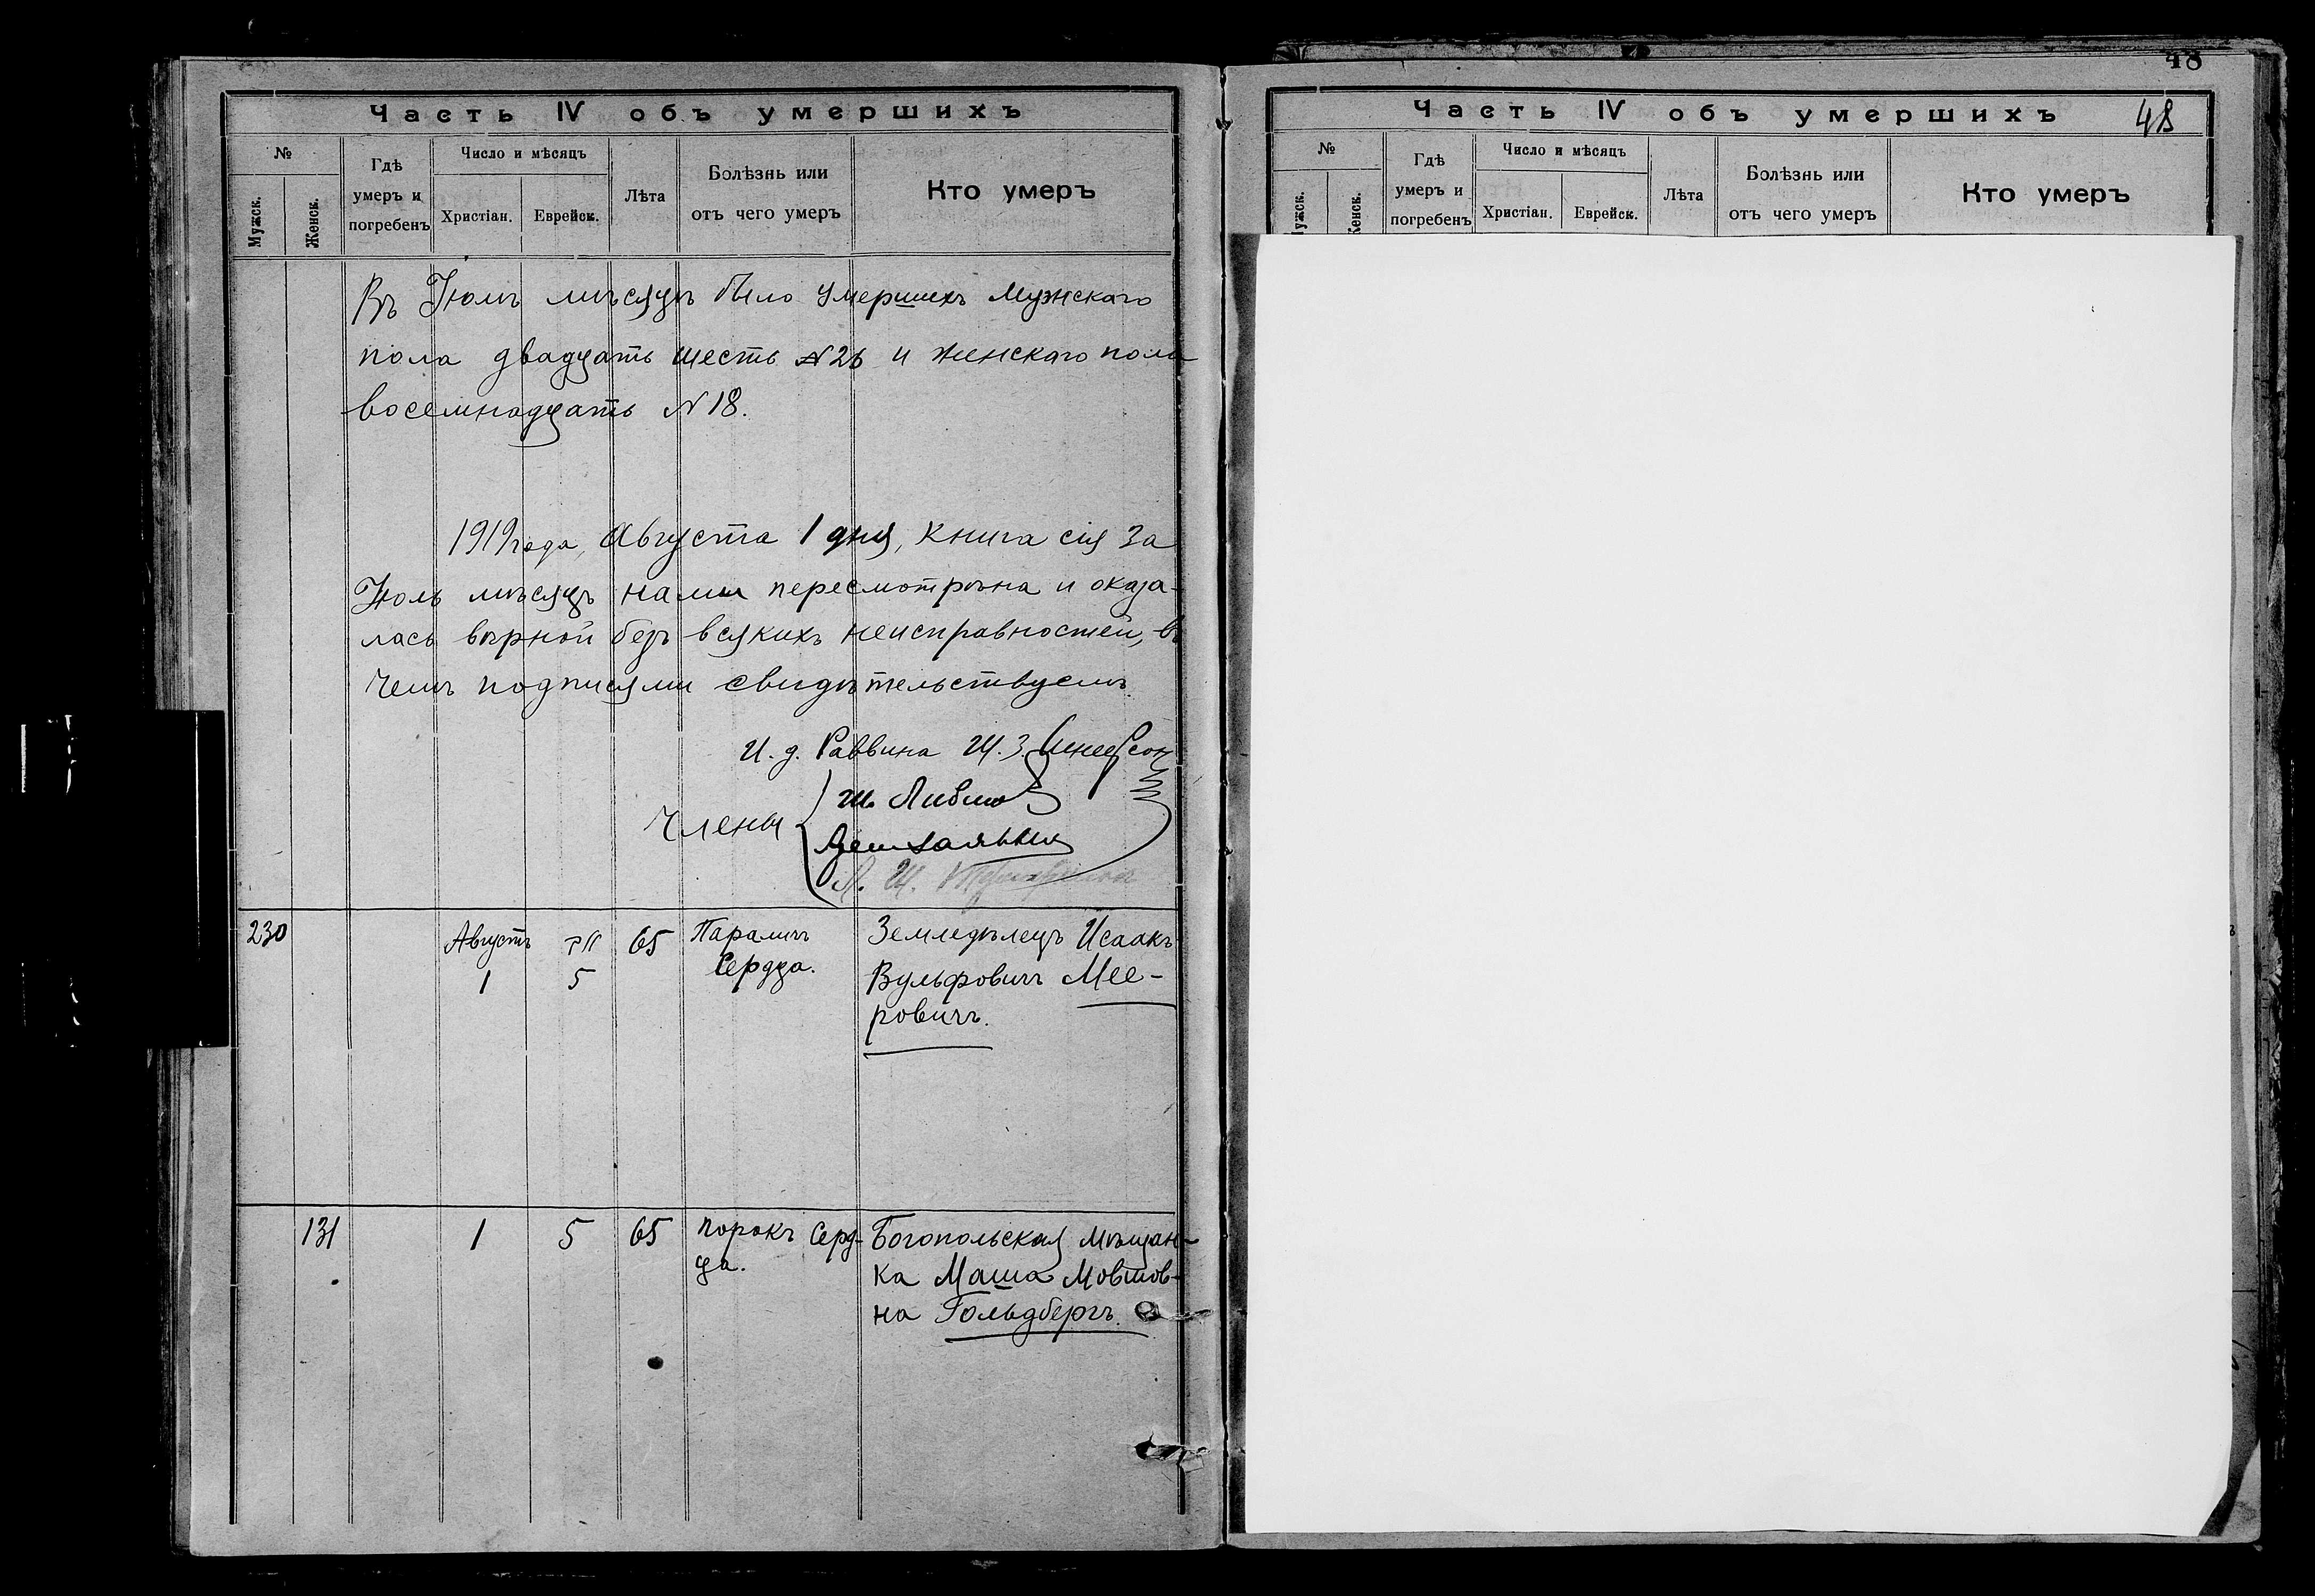 Часть IV объ умершихъ
№
Мужск.
Женск.
Гдѣ
умеръ и
погребенъ
Число и мѣсяцъ
Христіан.
Еврейск.
Лѣта
Болѣзнь или
отъ чего умеръ
Кто умеръ
Въ Іюлѣ мѣсяцѣ было умершихъ Мужскаго
пола двадцать шесть N26 и женскаго пола
восемнадцать N18.
1919 года, Августа 1 дня, книга сія за
Іюль мѣсяцъ нами пересмотрѣна и оказа-
лась вѣрной безъ всякихъ неисправностей, въ
чемъ подписями свидѣтельствуемъ.
И. д. Раввина Ш. З. Шнеерсон
Члены
Ш.
Л. Ш.
230
Августъ
1
5
65
Параличъ
Сердца.
Земледѣлецъ Исаакъ
Вульфовичъ Мее-
ровичъ.
131
1
5
65
порокъ Серд-
ца.
Богопольская мѣщан-
ка Маша Мовшов-
на Гольдбергъ.
48
Часть IV объ умершихъ
48
№
Мужск.
Женск.
Гдѣ
умеръ и
погребенъ
Число и мѣсяцъ
Христіан.
Еврейск.
Лѣта
Болѣзнь или
отъ чего умеръ
Кто умеръ